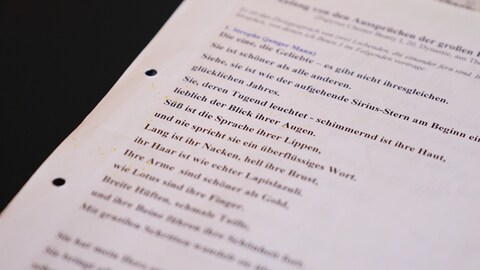 ng von den Aussprüchen der großen
(Papyrus Chester Beatty I, 20. Dynastie, aus
1. Strophe (junger Mann)
Die eine, die Geliebte – es gibt nicht ihresgleichen.
Sie ist schöner als alle anderen.
Siehe, sie ist wie der aufgehende Sirius-Stern am Beginn ein
glücklichen Jahres.
Sie, deren Tugend leuchtet - schimmernd ist ihre Haut,
lieblich der Blick ihrer Augen.
Süß ist die Sprache ihrer Lippen,
und nie spricht sie ein überflüssiges Wort.
Lang ist ihr Nacken, hell ihre Brust,
ihr Haar ist wie echter Lapislazuli.
Ihre Arme sind schöner als Gold,
wie Lotus sind ihre Finger.
Breite Hüften, schmale Taille,
und ihre Beine führen ihre Schönheit fort.
Mit grazilen Schritten
Sie hat mein Herz